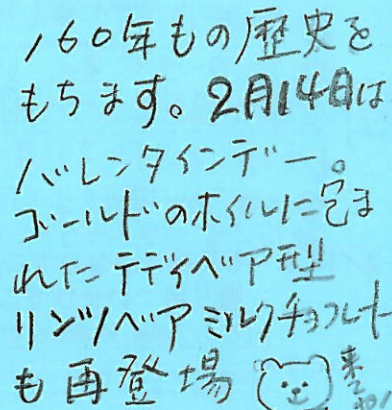 160年もの歴史を
もちます。2月14日は
バレンタインデー。
ゴールドのホイルに包ま
れた テディベア型
リンツベア ミルクチョコレート
も 再登場